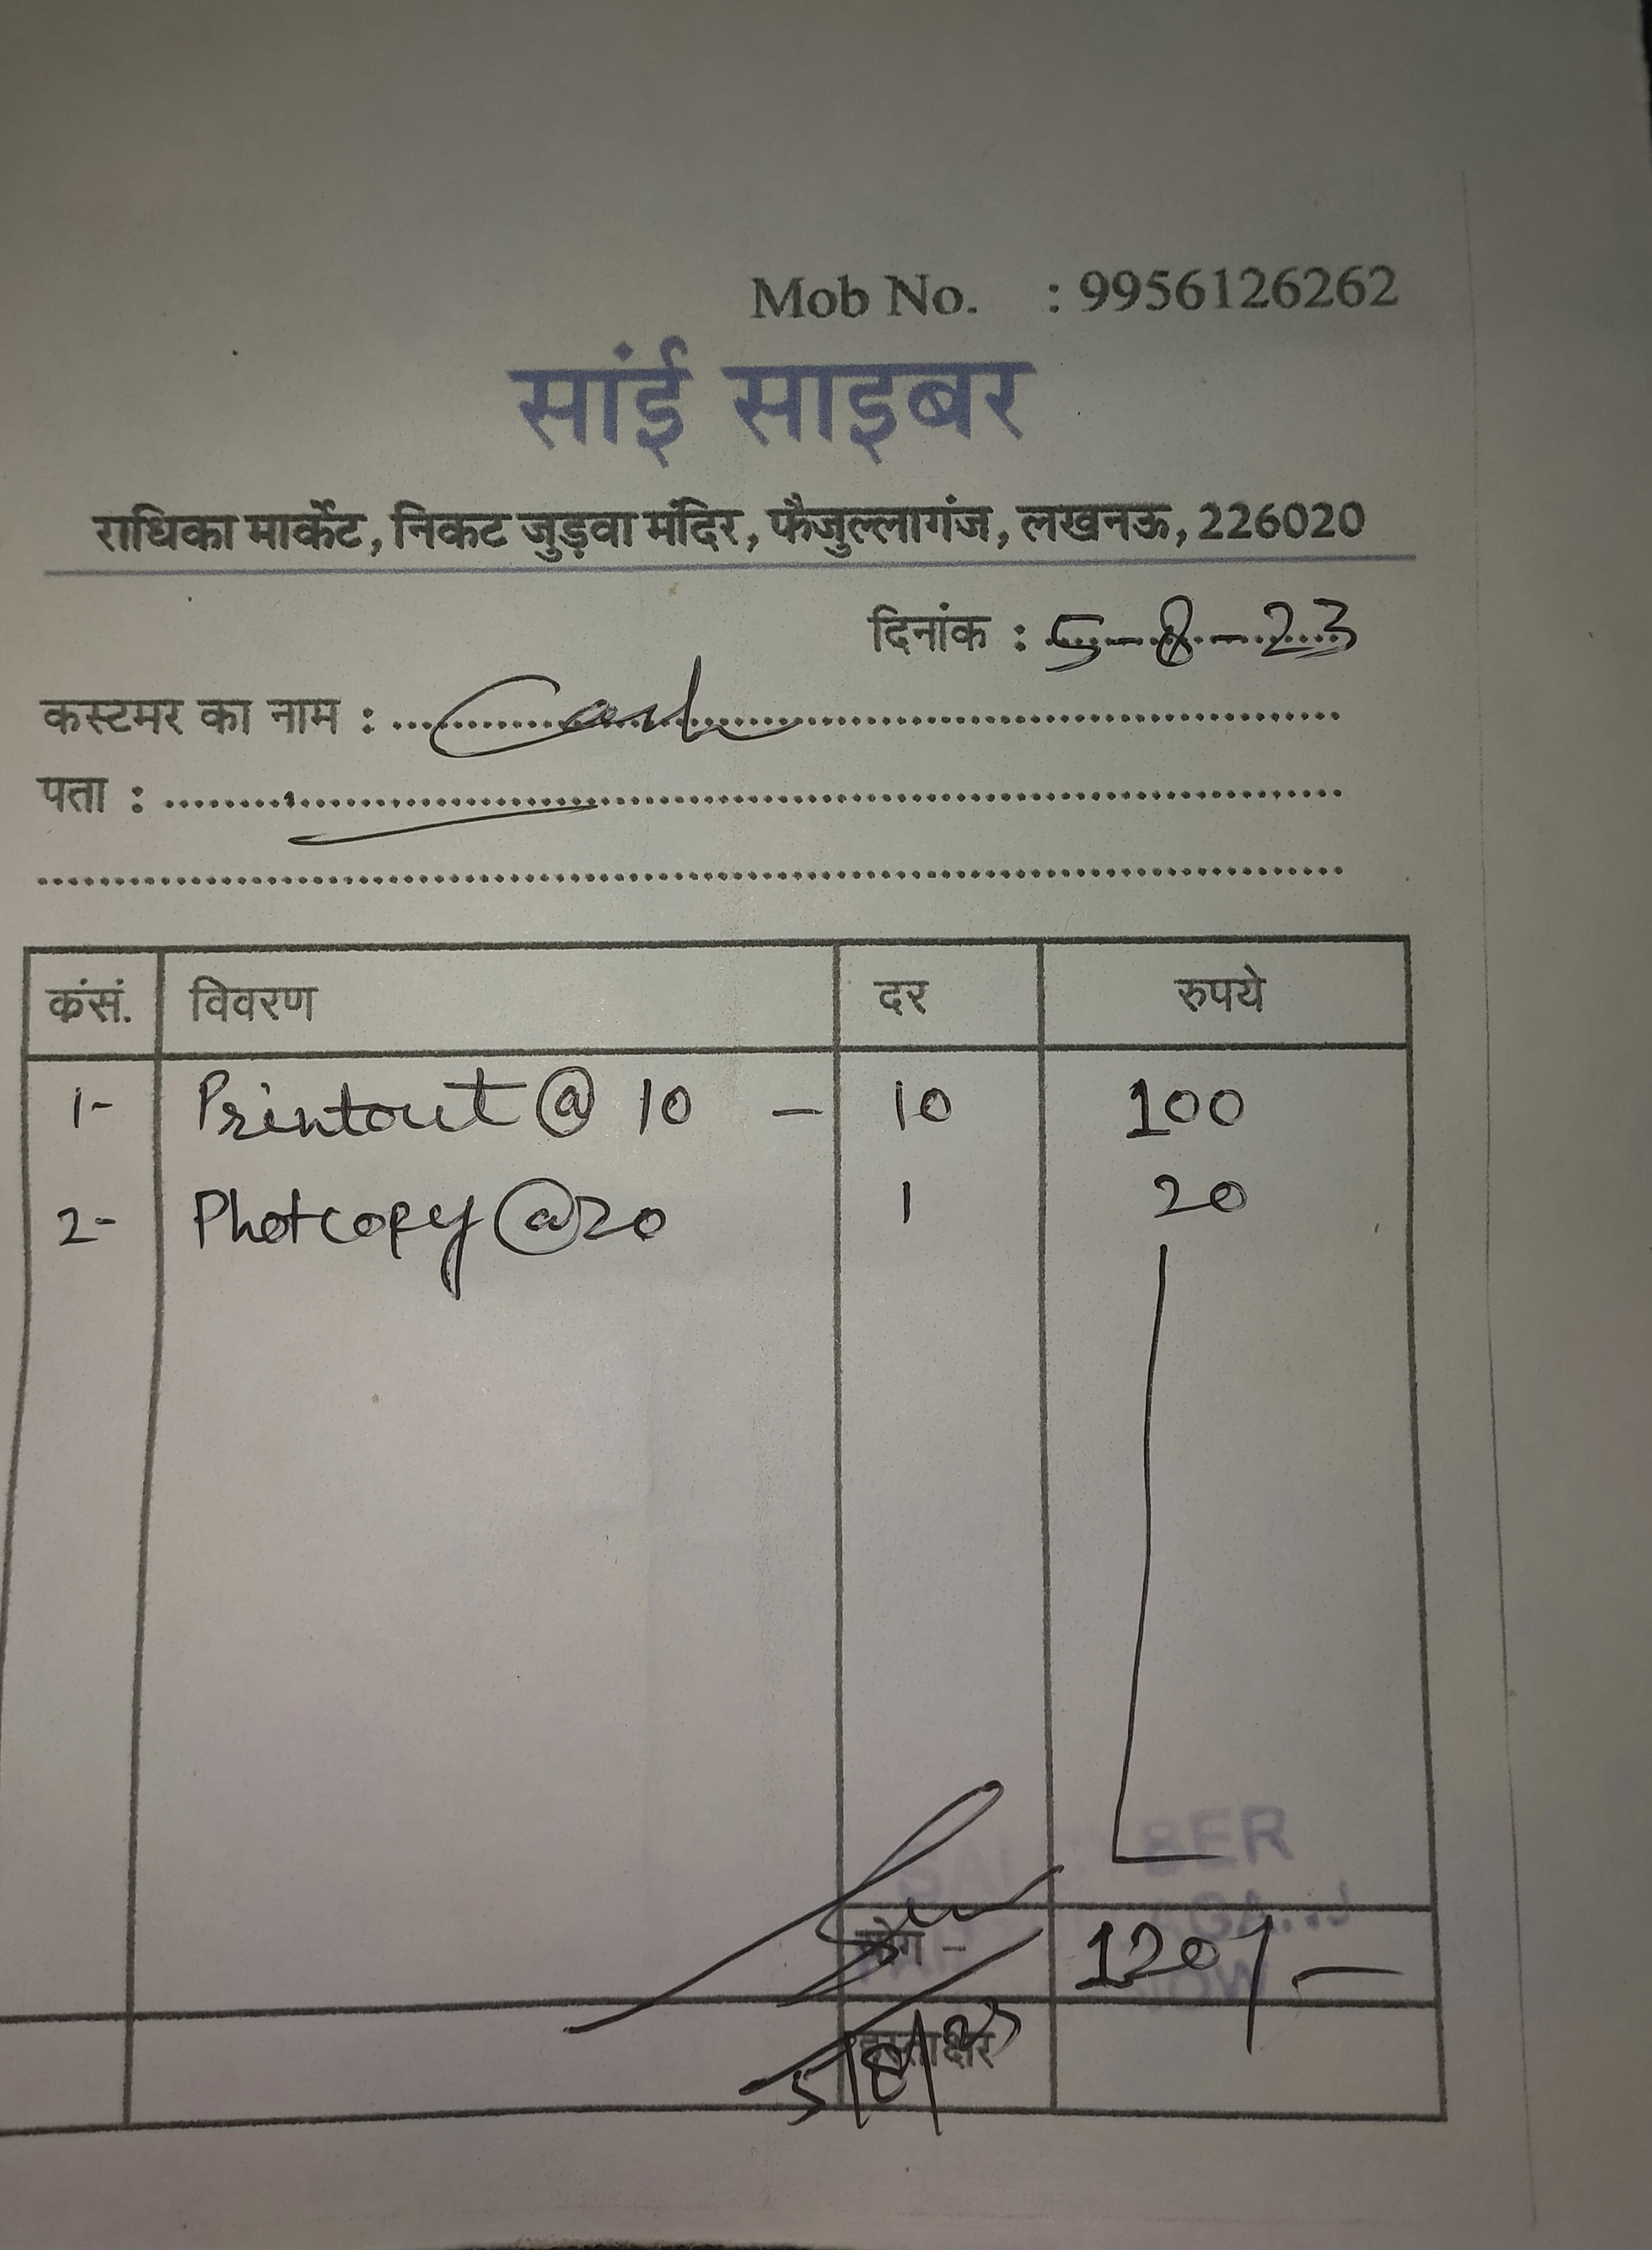 Mob No. : 9956126262
सांई साइबर
राधिका मार्केट, निकट जुड़वा मंदिर, फैजुल्लागंज, लखनऊ, 226020
दिनांक : 5-8-23
कस्टमर का नाम : Cash
पता :
कंसं. विवरण दर रुपये
1- Printout @ 10 - 10 100
2- Photcopy @ 20 1 20
योग - 120/-
हस्ताक्षर
5/8/23